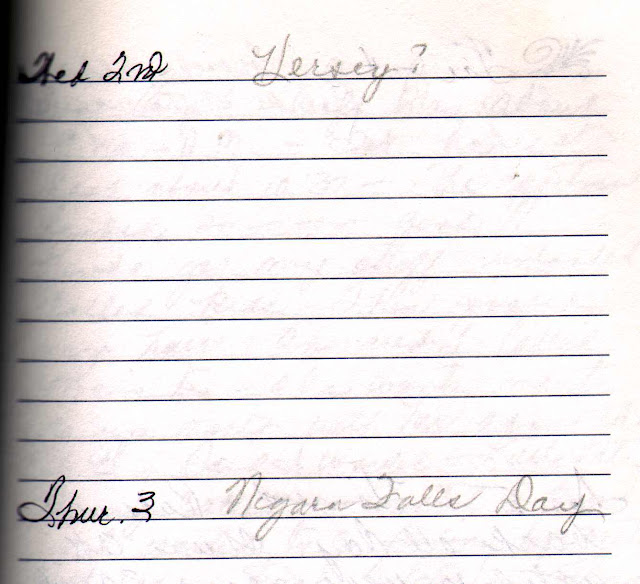 Wed 2nd Hersey?
Thur. 3 Nigara Falls Day